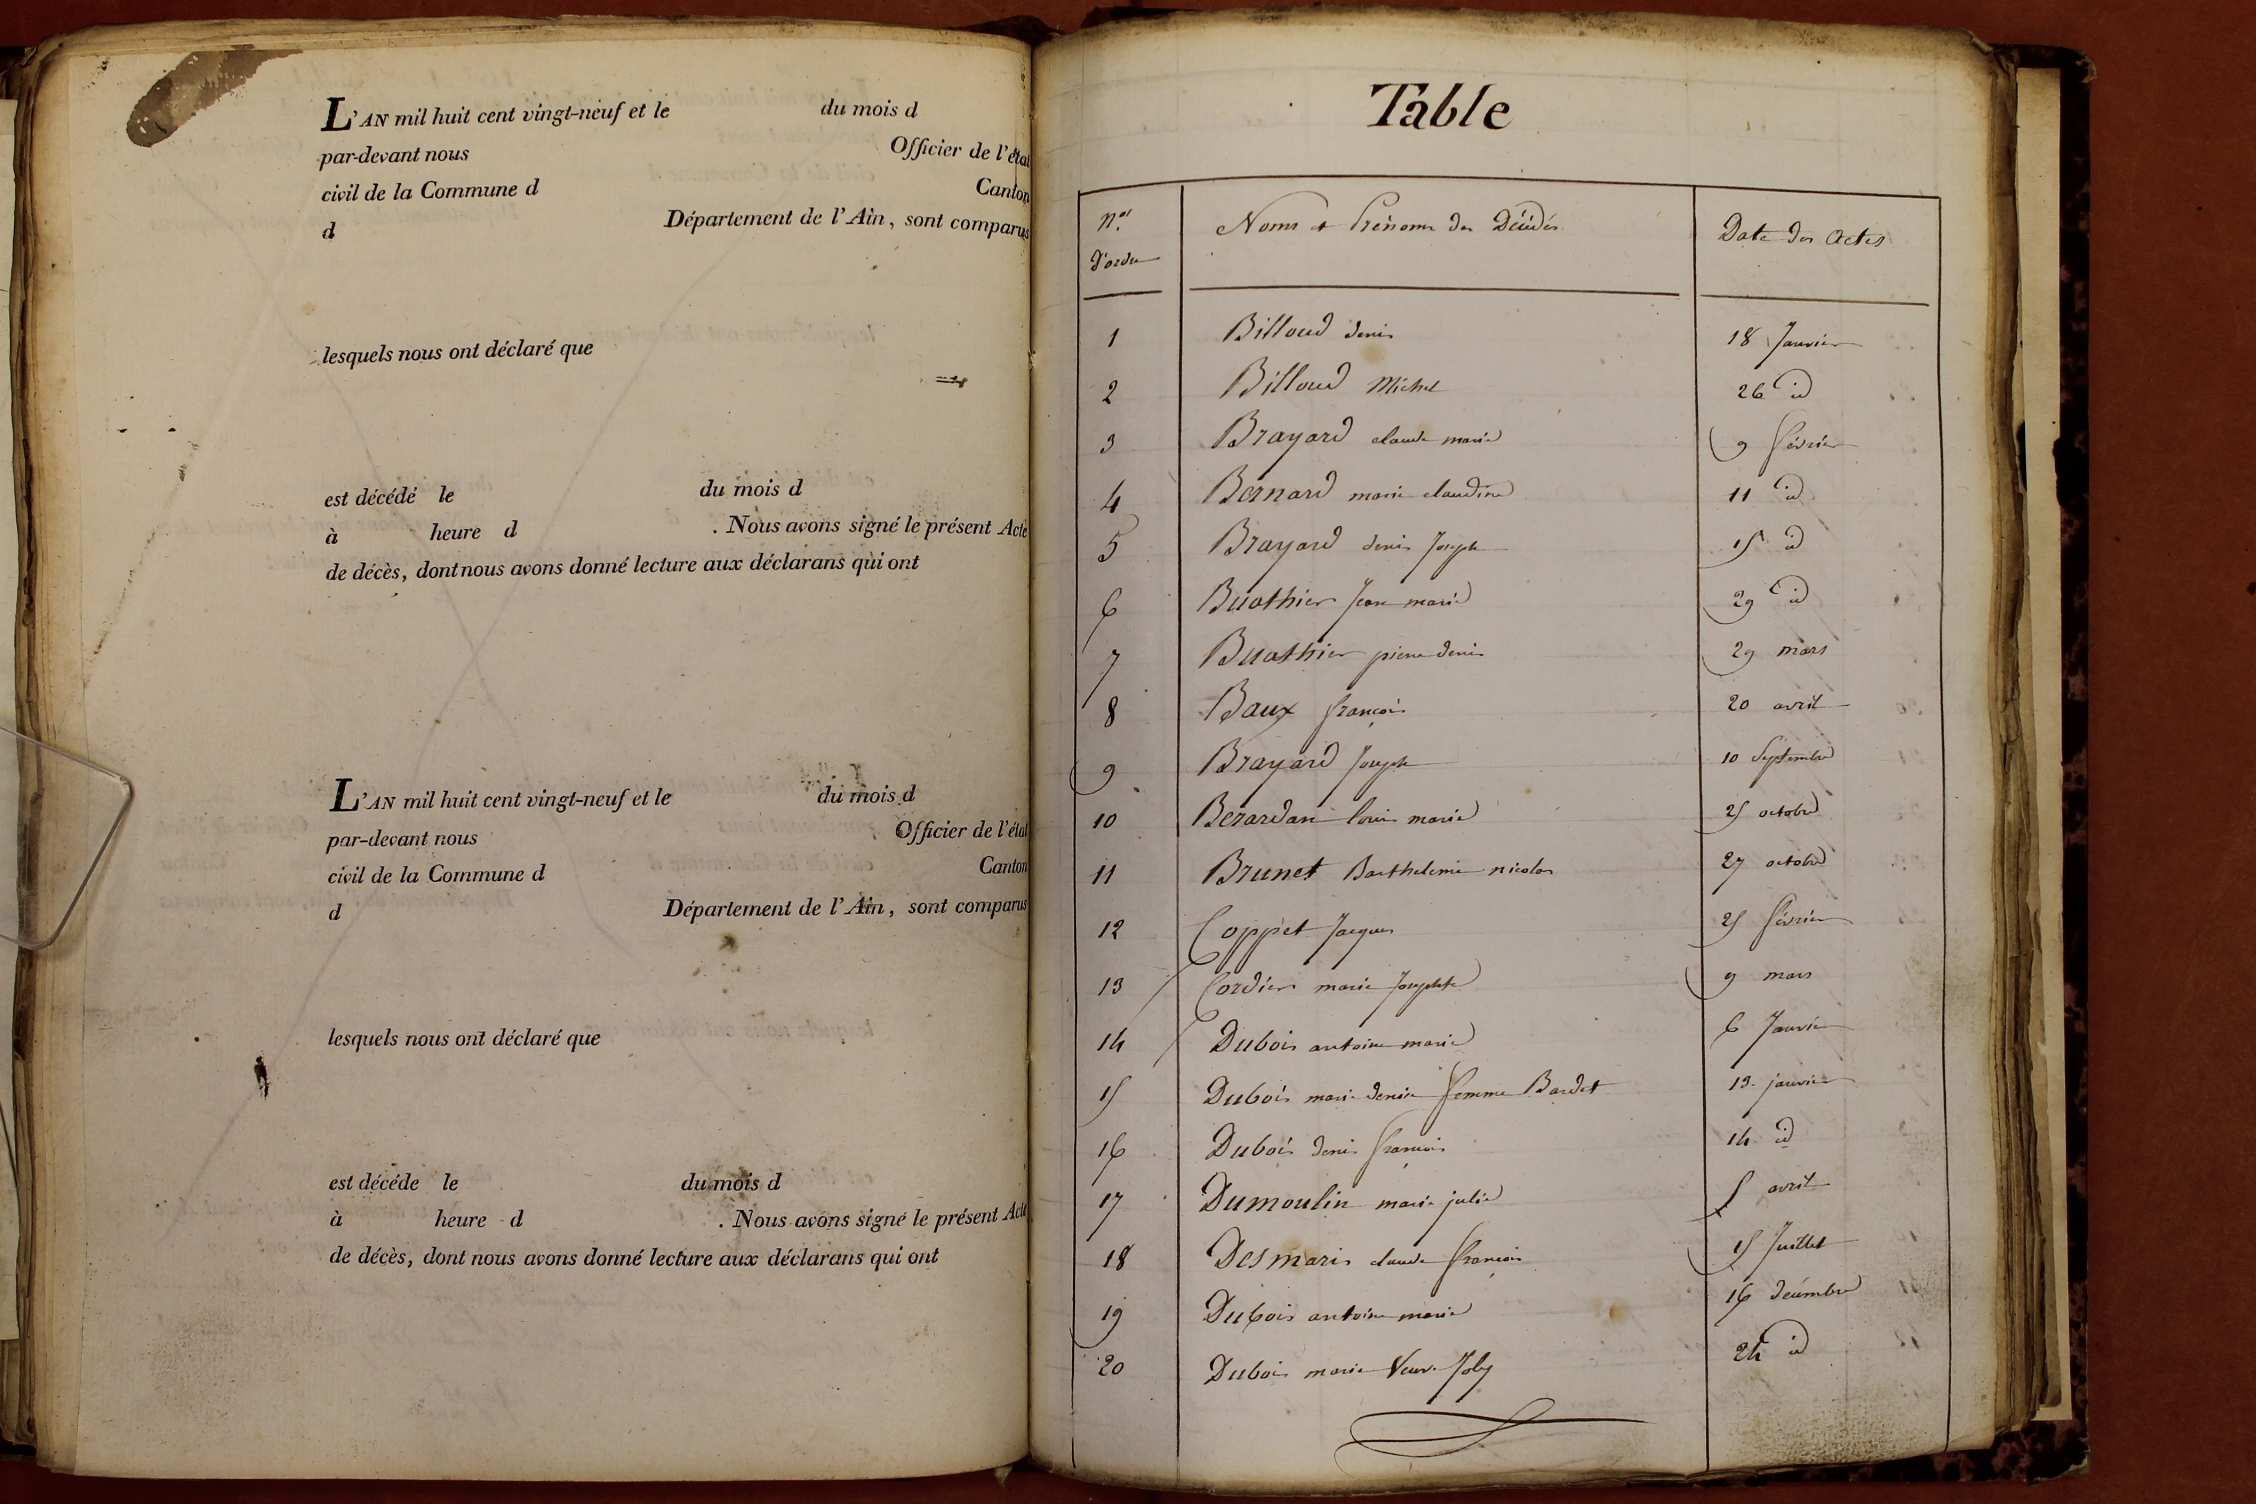 L'AN mil huit cent vingt-neuf et le du mois d
par-devant nous Officier de l'état
civil de la Commune d Canton
d Département de l'Ain, sont comparus
lesquels nous ont déclaré que
est décédé le du mois d
à heure d . Nous avons signé le présent Acte
de décès, dont nous avons donné lecture aux déclarans qui ont
L'AN mil huit cent vingt-neuf et le du mois d
par-devant nous Officier de l'état
civil de la Commune d Canton
d Département de l'Ain, sont comparus
lesquels nous ont déclaré que
est décédé le du mois d
à heure d . Nous avons signé le présent Acte
de décès, dont nous avons donné lecture aux déclarans qui ont
Table
Nos d'ordre Noms et Prénoms des Décédés Date des Actes
1 Billoud denis 18 Janvier
2 Billoud Michel 26 id
3 Brayard claude marie 9 février
4 Bernard marie claudine 11 id
5 Brayard denis Joseph 15 id
6 Buathier Jean marie 29 id
7 Buathier pierre denis 29 mars
8 Baux françois 20 avril
9 Brayard Joseph 10 Septembre
10 Berardan louis marie 25 octobre
11 Brunet Barthelemie nicolas 27 octobre
12 Coppet Jacques 25 février
13 Cordier marie Josephte 9 mars
14 Dubois antoine marie 6 Janvier
15 Dubois marie denise femme Bardet 13 janvier
16 Dubois denis françois 14 id
17 Dumoulin marie julie 5 avril
18 Desmaris claude françois 15 Juillet
19 Dubois antoine marie 16 décembre
20 Dubois marie Veuve Joly 24 id